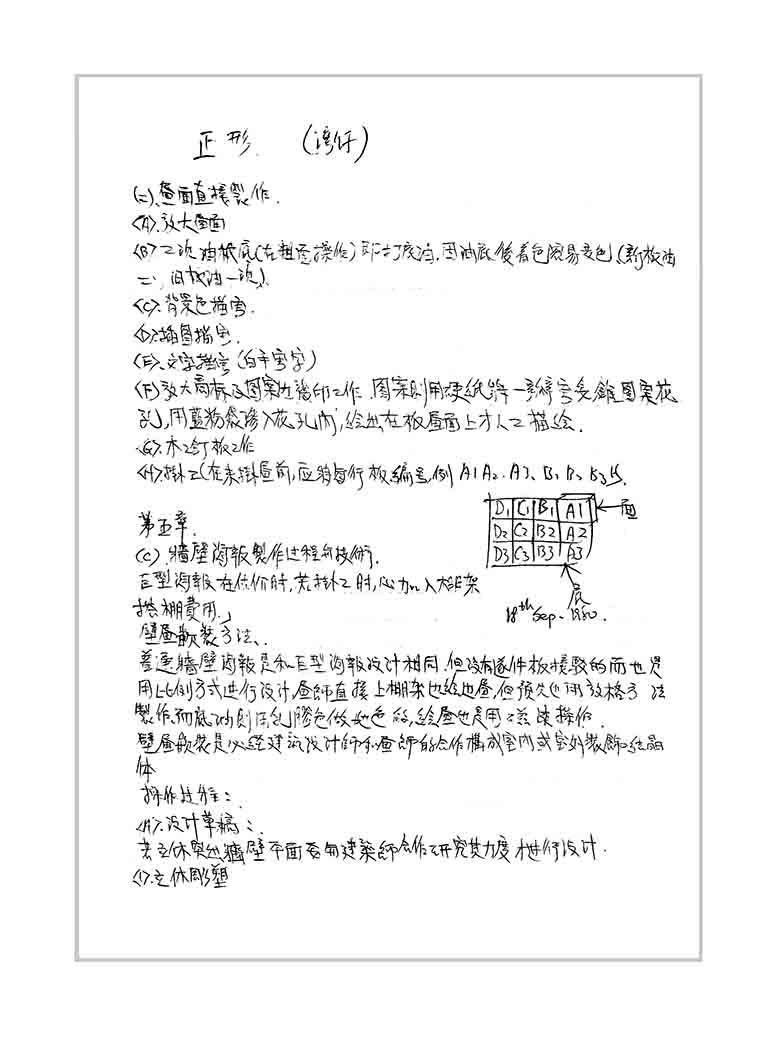 正形. (灣仔)
(二). 畫面直接製作.
<A>. 放大畫面
<B> 二次油板底(在粗畫操作)即打底油, 因油底後着色容易变色, (新板油
二, 旧板油一次).
<C>. 背景色描寫.
<D>. 插图描写.
<E>. 文字描寫 (白手寫字)
<F> 放大商标及图案边 印工作. 图案則用硬紙 图案花
孔, 用藍粉袋滲入花孔內, 绘出在板畫面上才人工描绘.
<G> 木工釘板工作
<H>. 掛工(在未掛畫前, 应将 行板編号, 例 A1 A2. A3, B1 B2 B3
D1 C1 B1 A1 ← 面
D2 C2 B2 A2
D3 C3 B3 A3
底
18th Sep. 1980.
第五章.
(C). 牆壁海報製作过程和技術.
巨型海報在估价时, 若掛工时, 必加入大 架
搭棚費用.」
壁畫嵌裝方法.
普通牆壁海報是和巨型海報设计相同. 但没有逐件板接駁的而也是
用比例方式进行设计, 畫師直接上棚架 绘 畫, 但预先也用放格方法
製作, 而底油則用乳膠色做 色的, 绘畫也是用 操作.
壁畫嵌裝是必经建筑设计師和畫師的合作構成室內或室外裝飾结晶
体
操作过程:.
<A>. 设计草稿:.
若立体突出牆壁平面要和建築師合作研究其力度才进行设计.
<1>. 立体彫塑